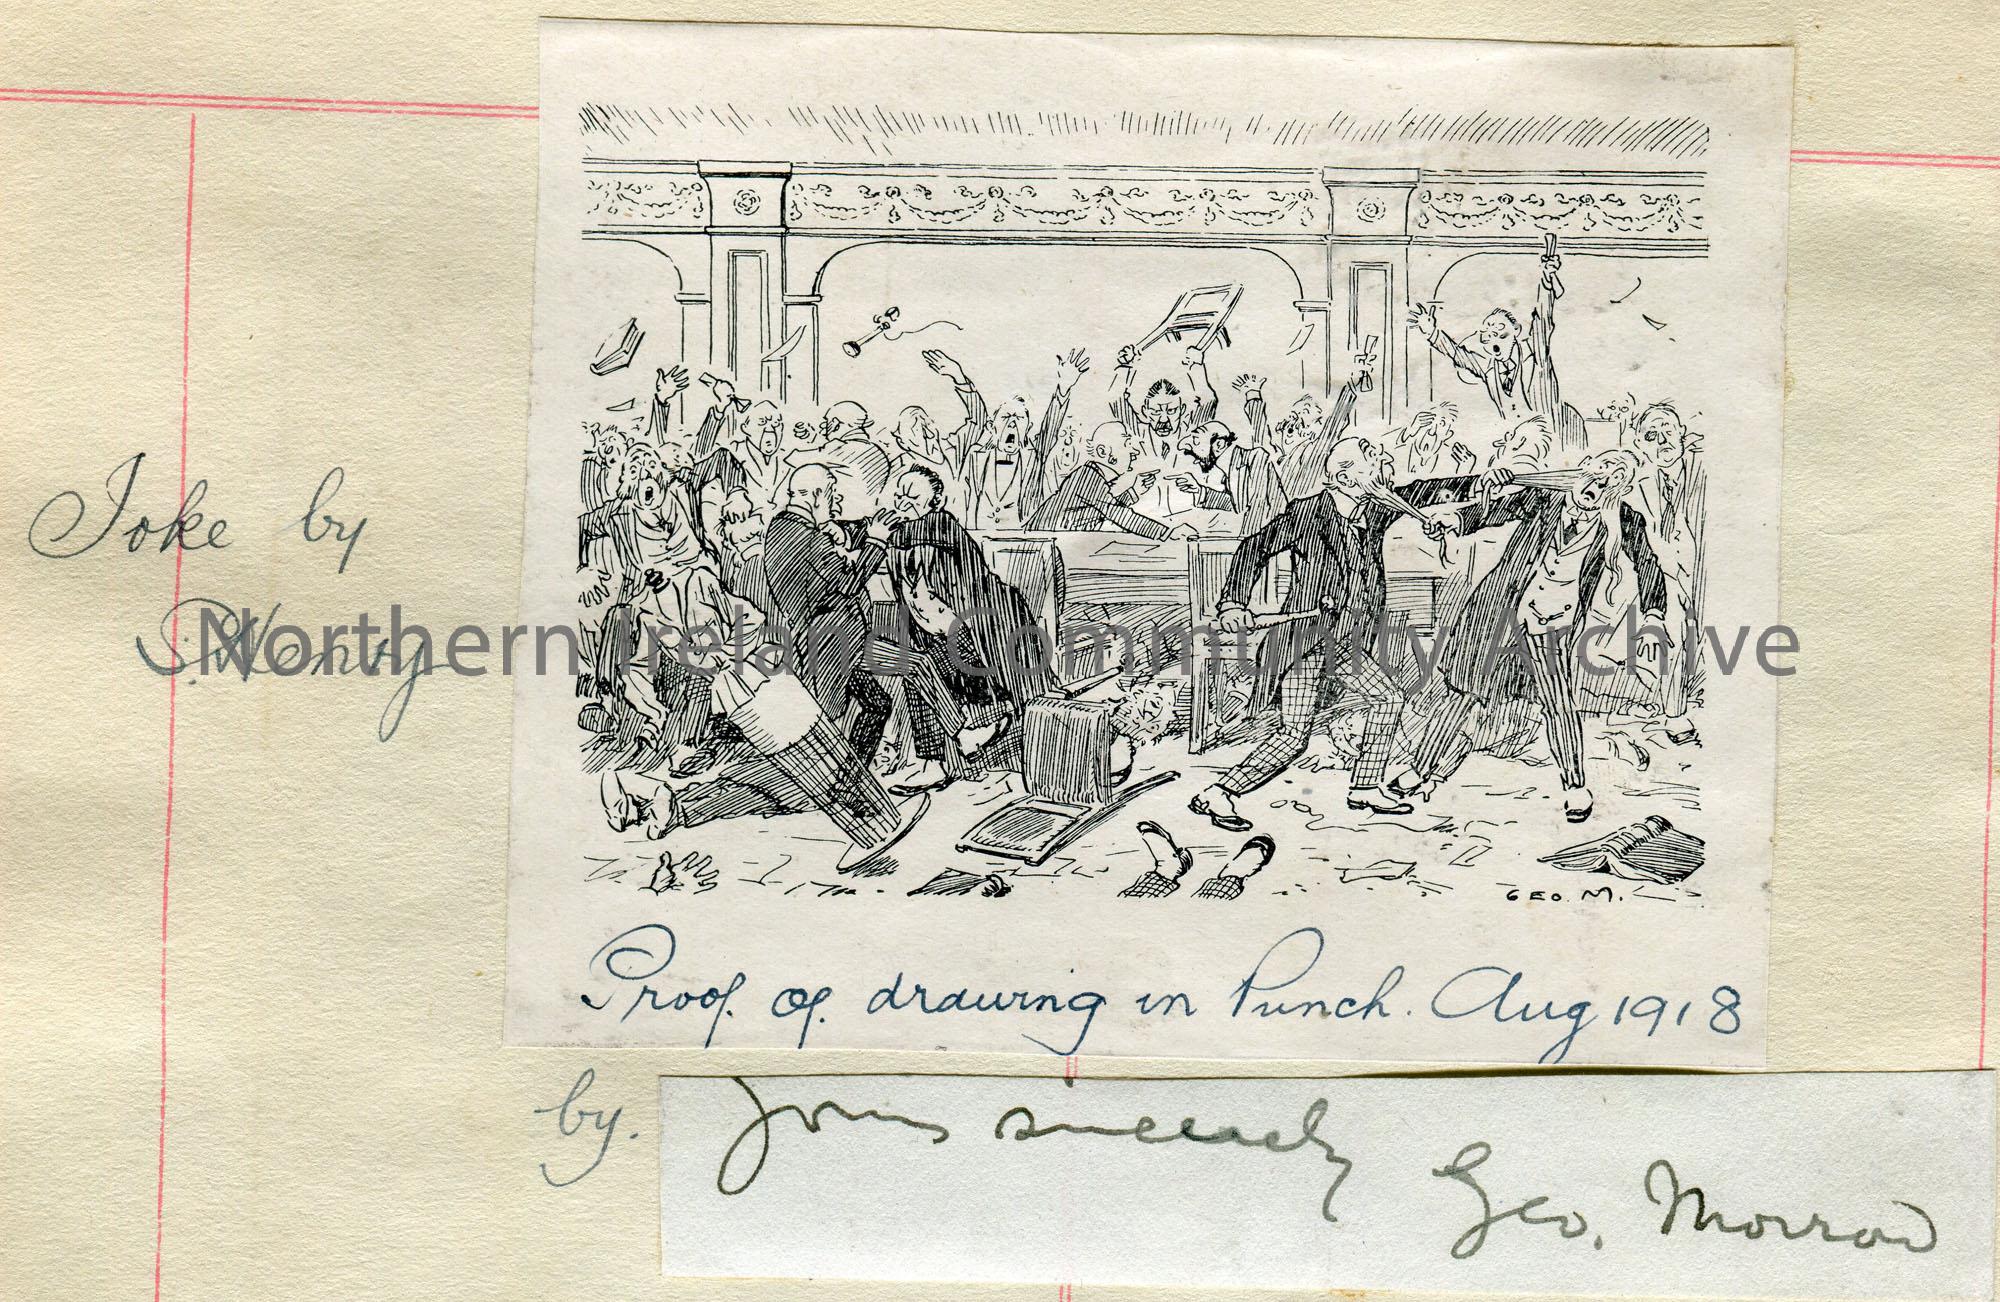 Joke by
S. Henry
Northern Ireland Community Archive
GEO. M.
Proof. of. drawing in Punch. Aug 1918
by.
Yours sincerely
Geo. Morrow